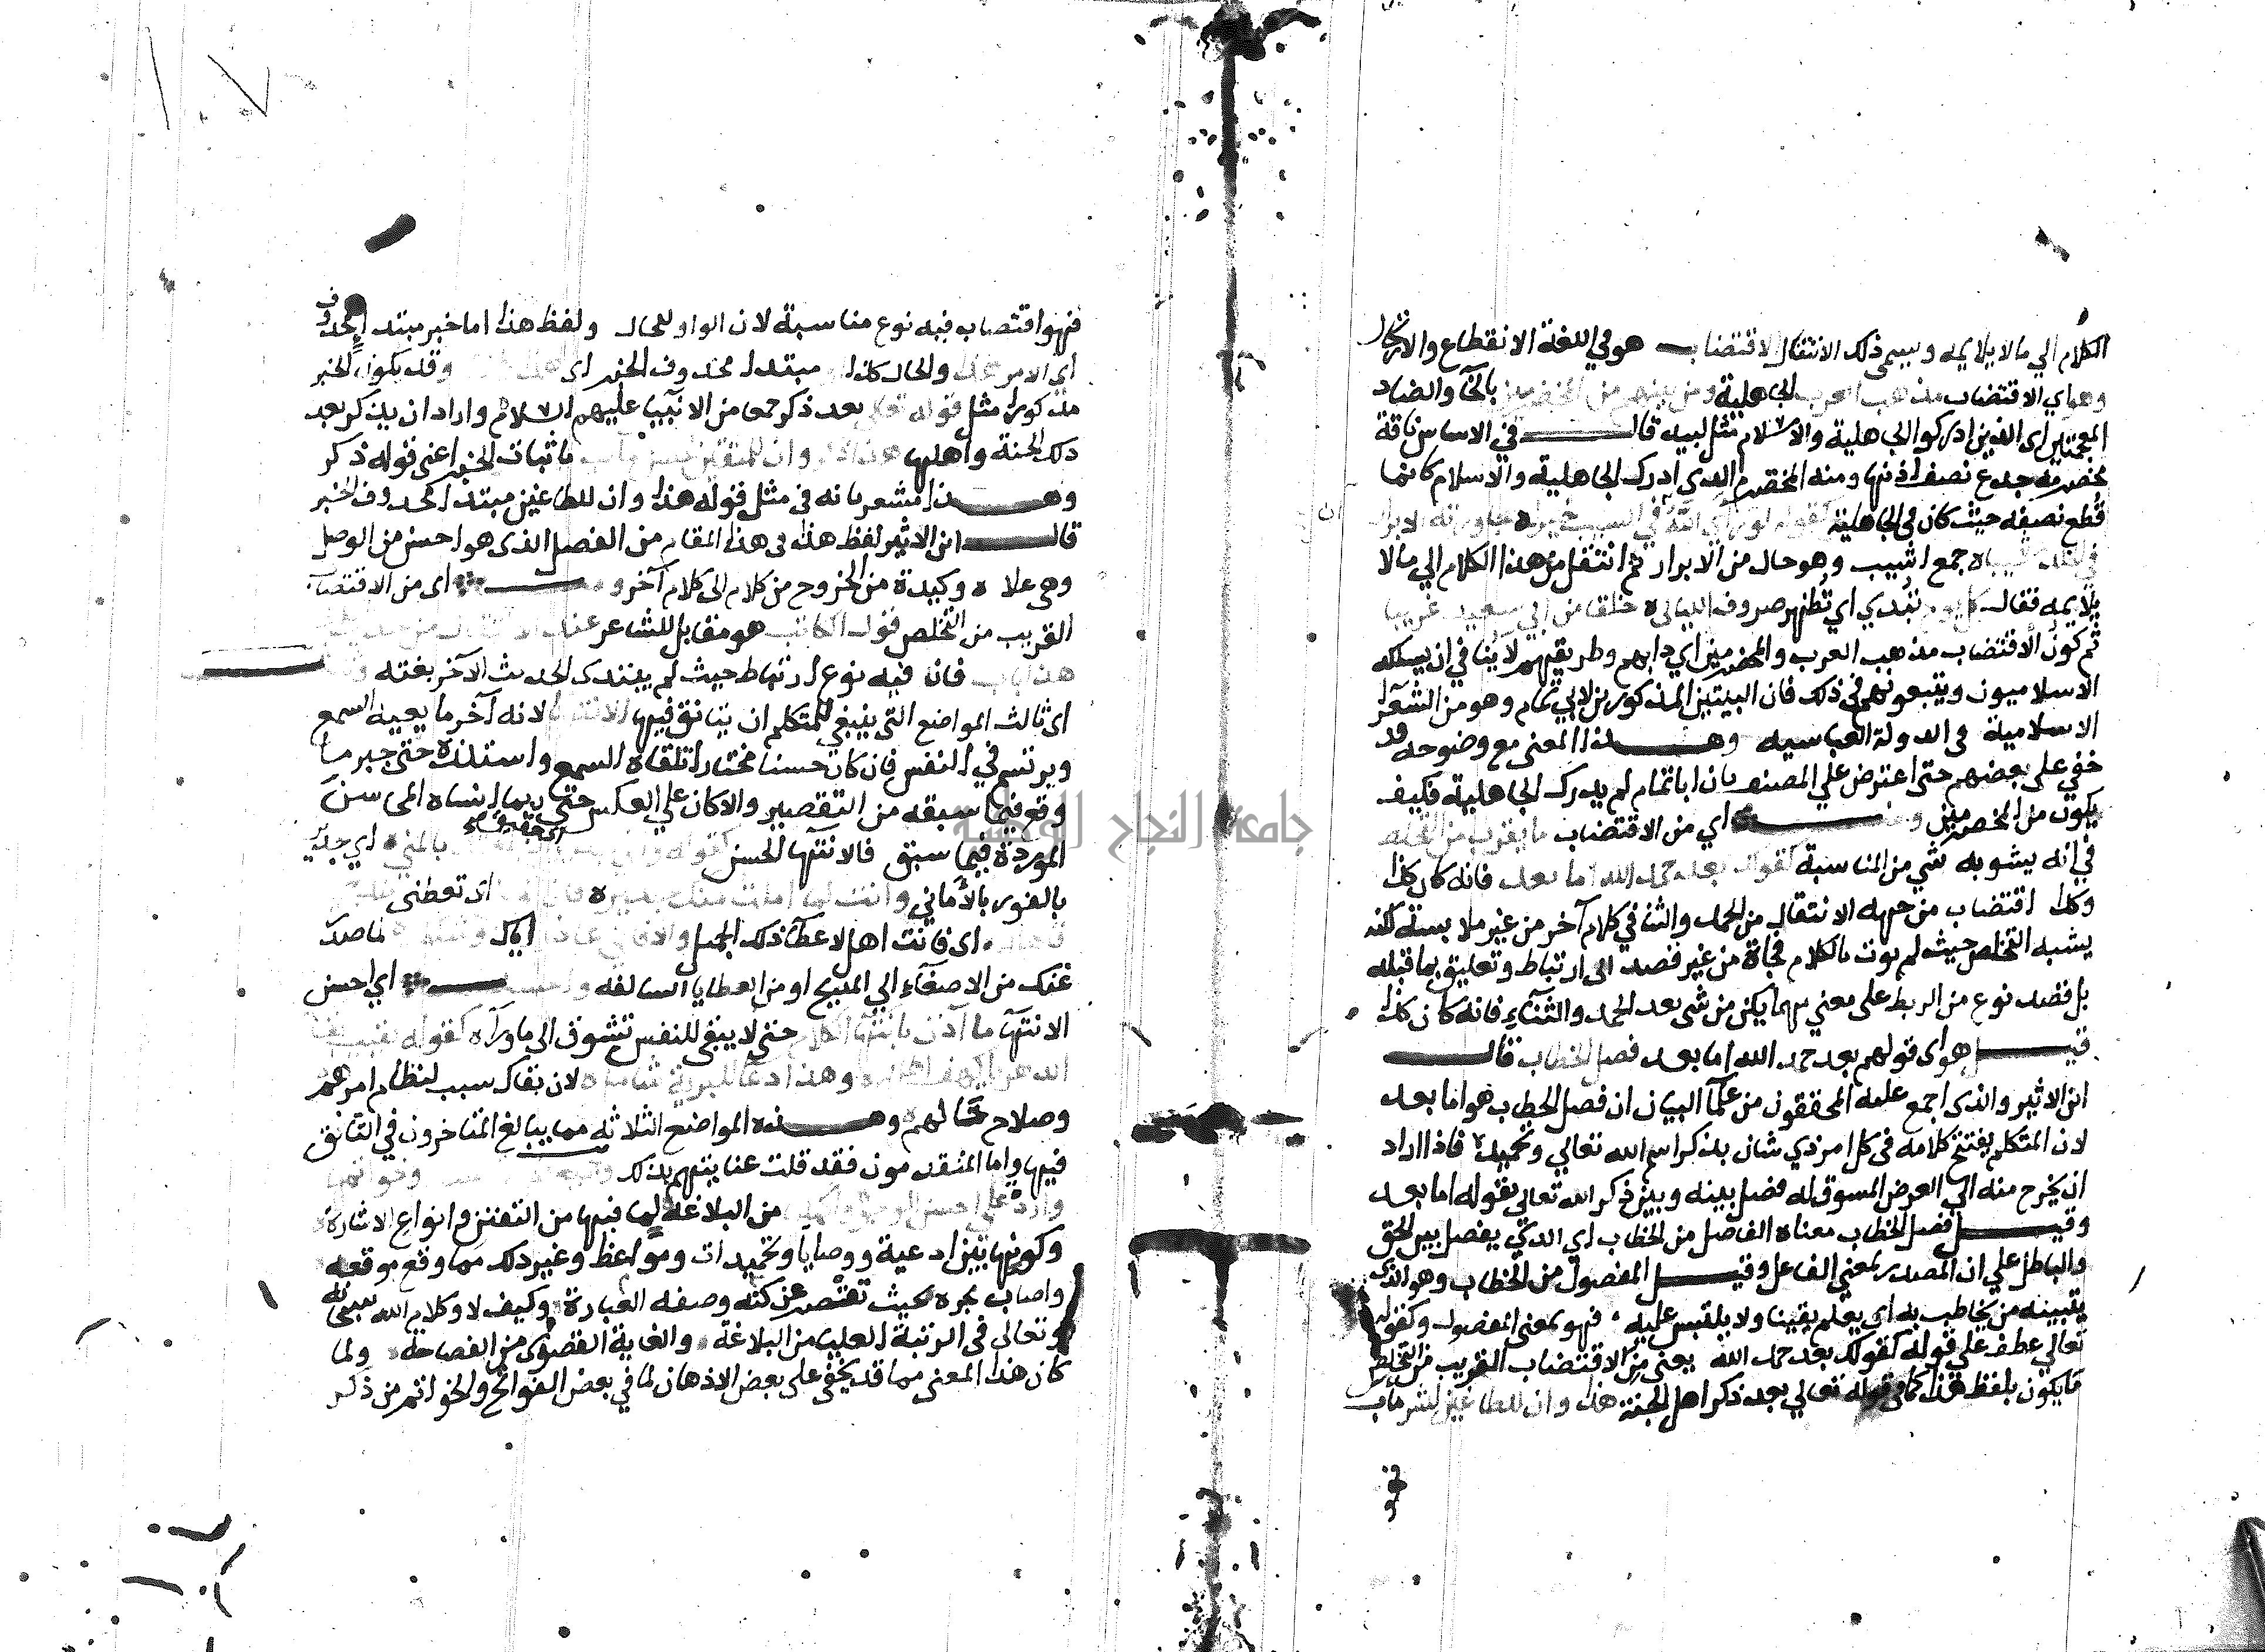 الكلام الي ما لا يلايمه ويسمى ذلك الانتقال الاقتضاب هو في اللغة الانقطاع والارتجال
وهو اي الاقتضاب مذهب العرب الجاهلية ومن يليهم من المخضرمين بالخآ والضاد
المعجمتين اى الذين ادركوا الجاهلية والاسلام مثل لبيد قال في الاساس ناقة
مخضرمة جدع نصف اذنها ومنه المخضرم الذي ادرك الجاهلية والاسلام كانما
قطع نصفه حيث كان في الجاهلية كقوله لو راى الله في الشيب خيرا جاورته الابرار
في الخلد شيبا جمع اشيب وهو حال من الابرار ثم انتقل من هذا الكلام الي ما لا
يلايمه فقال كل يوم تبدي اي تظهر صروف الليالي خلقا من ابي سعيد غريبا
ثم كون الاقتضاب مذهب العرب والمخضرمين اي دابهم وطريقتهم لا ينافي ان يسلكه
الاسلاميون ويتبعونهم في ذلك فان البيتين المذكورين لابي تمام وهو من الشعرآ
الاسلامية في الدولة العباسيه وهذا المعنى مع وضوحه قد
خفي على بعضهم حتى اعترض علي المصنف بان ابا تمام لم يدرك الجاهلية فكيف
يكون من المخضرمين ومنه اي من الاقتضاب ما يقرب من التخلص
في انه يشوبه شي من المناسبة كقولك بعد حمد الله اما بعد فانه كان كذا
وكذا اقتضاب من جهه الانتقال من الحمد والثنا في كلام آخر من غير ملابسة لكنه
يشبه التخلص حيث لم يوت بالكلام فجاة من غير قصد الى ارتباط وتعليق بما قبله
بل قصد نوع من الربط على معني مهما يكن من شى بعد الحمد والثنآء فانه كان كذا
قيل هو اى قولهم بعد حمد الله اما بعد فصل الخطاب قال
ابن الاثير والذى اجمع عليه المحققون من علمآ البيان ان فصل الخطاب هو اما بعد
لان المتكلم يفتتح كلامه في كل امر ذي شان بذكر اسم الله تعالي وتحميده فاذا اراد
ان يخرج منه الي الغرض المسوق له فصل بينه وبين ذكر الله تعالى بقوله اما بعد
وقيل فصل الخطاب معناه الفاصل من الخطاب اي الذي يفصل بين الحق
والباطل علي ان المصدر بمعني الفاعل وقيل المفصول من الخطاب وهو الذي
يتبينه من يخاطب به اي يعلم يقينا ولا يلتبس عليه فهو بمعنى المفصول وكقوله
تعالي عطف علي قوله كقولك بعد حمد الله يعنى من الاقتضاب القريب من التخلص
ما يكون بلفظ هذا كما في قوله تعالي بعد ذكر اهل الجنة هذا وان للطاغين لشر مآب
فهو
فهو اقتضاب فيه نوع مناسبة لان الواو للحال ولفظ هذا اما خبر مبتدا محذوف
اي الامر هذا والحال كذا او مبتدا محذوف الخبر اى هذا وقد يكون الخبر
مذكورا مثل قوله تعالى بعد ذكر جمعا من الانبيآ عليهم السلام واراد ان يذكر بعد
ذلك الجنة واهلها هذا ذكر وان للمتقين لحسن مآب باثبات الخبر اعنى قوله ذكر
وهذا مشعر بانه في مثل قوله هذا وان للطاغين مبتدا محذوف الخبر
قال ابن الاثير لفظ هذا في هذا المقام من الفصل الذى هو احسن من الوصل
وهى علاقة وكيدة من الخروج من كلام الى كلام آخر ومنه اى من الاقتضاب
القريب من التخلص قول الكاتب هو مقابل للشاعر عند
هذا باب فان فيه نوع ارتباط حيث لم يبتدى الحديث الآخر بغته
اى ثالث المواضع التي ينبغي للمتكلم ان يتانق فيها الانتها لانه آخر ما يعيه السمع
ويرتسم في النفس فان كان حسنا مختارا تلقاه السمع واستلذه حتى جبر ما
وقع فيما سبقه من التقصير والا كان علي العكس حتي ربما انساه المحاسن
الموردة فيما سبق فالانتها الحسن كقوله بالمنى اي جدير
بالفوز بالاماني وانت بما املت منك جدير فان اى تعطنى
اى فانت اهل لاعطآ ذلك الجميل اياك لما صدر
عنك من الاصغآء الي المديح او من العطايا السالفه واحسنه اي احسن
الانتهآ ما آذن بانتها الكلام حتى لا يبقى للنفس تشوف الي ما ورآه كقوله بقيت بقآ
الدهر يا كهف اهله وهذا دعآ للبرية شامل لان بقاك سبب لنظام امرهم
وصلاح حالهم وهذه المواضع الثلاثه مما يبالغ المتاخرون في التانق
فيها واما المتقدمون فقد قلت عنايتهم بذلك وجميع وخواتمها
واردة علي احسن الوجوه واكملها من البلاغة لما فيها من التفنن وانواع الاشارة
وكونها بين ادعية ووصايا وتحميدات ومواعظ وغير ذلك مما وقع موقعه
واصاب نحره بحيث تقتصر عن كنه وصفه العبارة وكيف لا وكلام الله سبحانه
وتعالى في الرتبة العليا من البلاغة والغاية القصوى من الفصاحة ولما
كان هذا المعنى مما قد يخفى على بعض الاذهان لما في بعض الفواتح والخواتم من ذكر
جامعة النجاح الوطنية